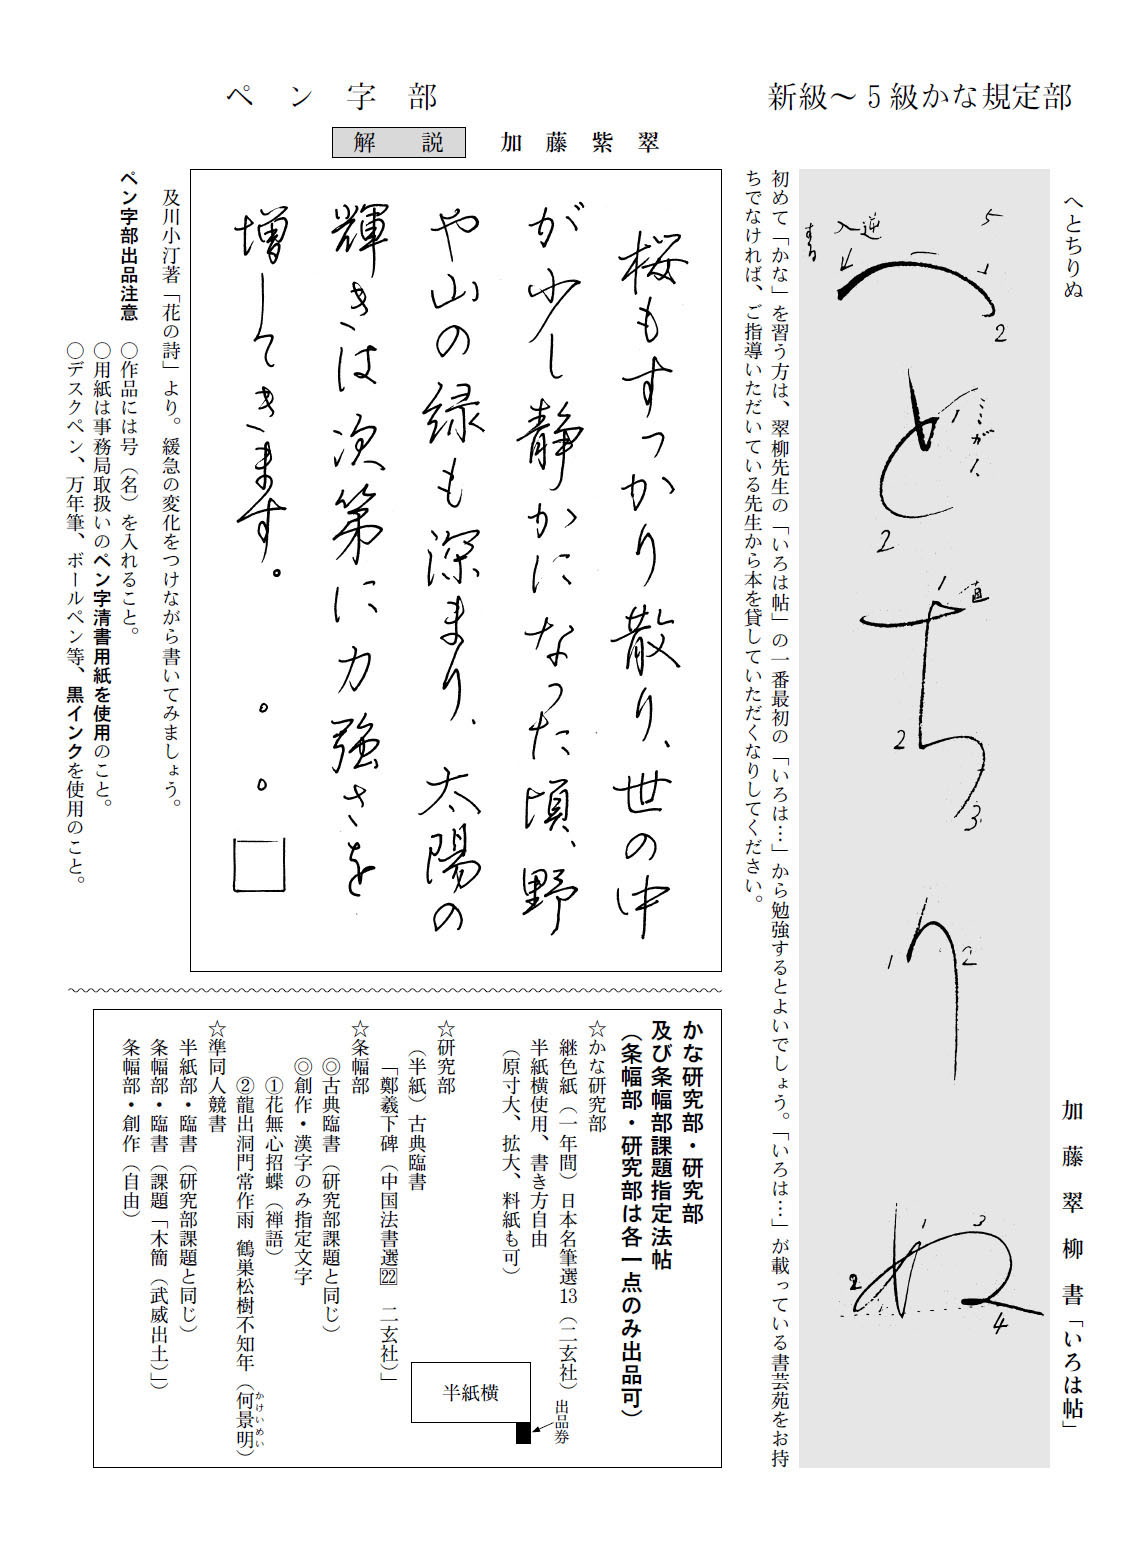 新級～5級かな規定部
へとちりぬ
加藤翠柳書「いろは帖」
5
逆
入
する
1
2
ミミが人
1
2
直
1
2
3
1
2
1
2
3
4
初めて「かな」を習う方は、翠柳先生の「いろは帖」の一番最初の「いろは…」から勉強するとよいでしょう。「いろは…」が載っている書芸苑をお持
ちでなければ、ご指導いただいている先生から本を貸していただくなりしてください。
ペン字部
解説 加藤紫翠
桜もすっかり散り、世の中
が少し静かになった頃、野
や山の緑も深まり、太陽の
輝きは次第に力強さを
増してきます。
及川小汀著「花の詩」より。緩急の変化をつけながら書いてみましょう。
ペン字部出品注意 ○作品には号（名）を入れること。
○用紙は事務局取扱いのペン字清書用紙を使用のこと。
○デスクペン、万年筆、ボールペン等、黒インクを使用のこと。
かな研究部・研究部
及び条幅部課題指定法帖
（条幅部・研究部は各一点のみ出品可）
☆かな研究部
継色紙（一年間）日本名筆選13（二玄社）
半紙横使用、書き方自由
（原寸大、拡大、料紙も可）
半紙横
出品券
☆研究部
（半紙）古典臨書
「鄭羲下碑（中国法書選22 二玄社）」
☆条幅部
◎古典臨書（研究部課題と同じ）
◎創作・漢字のみ指定文字
①花無心招蝶（禅語）
②龍出洞門常作雨 鶴巣松樹不知年（何景明）
かけいめい
☆準同人競書
半紙部・臨書（研究部課題と同じ）
条幅部・臨書（課題「木簡（武威出土）」）
条幅部・創作（自由）